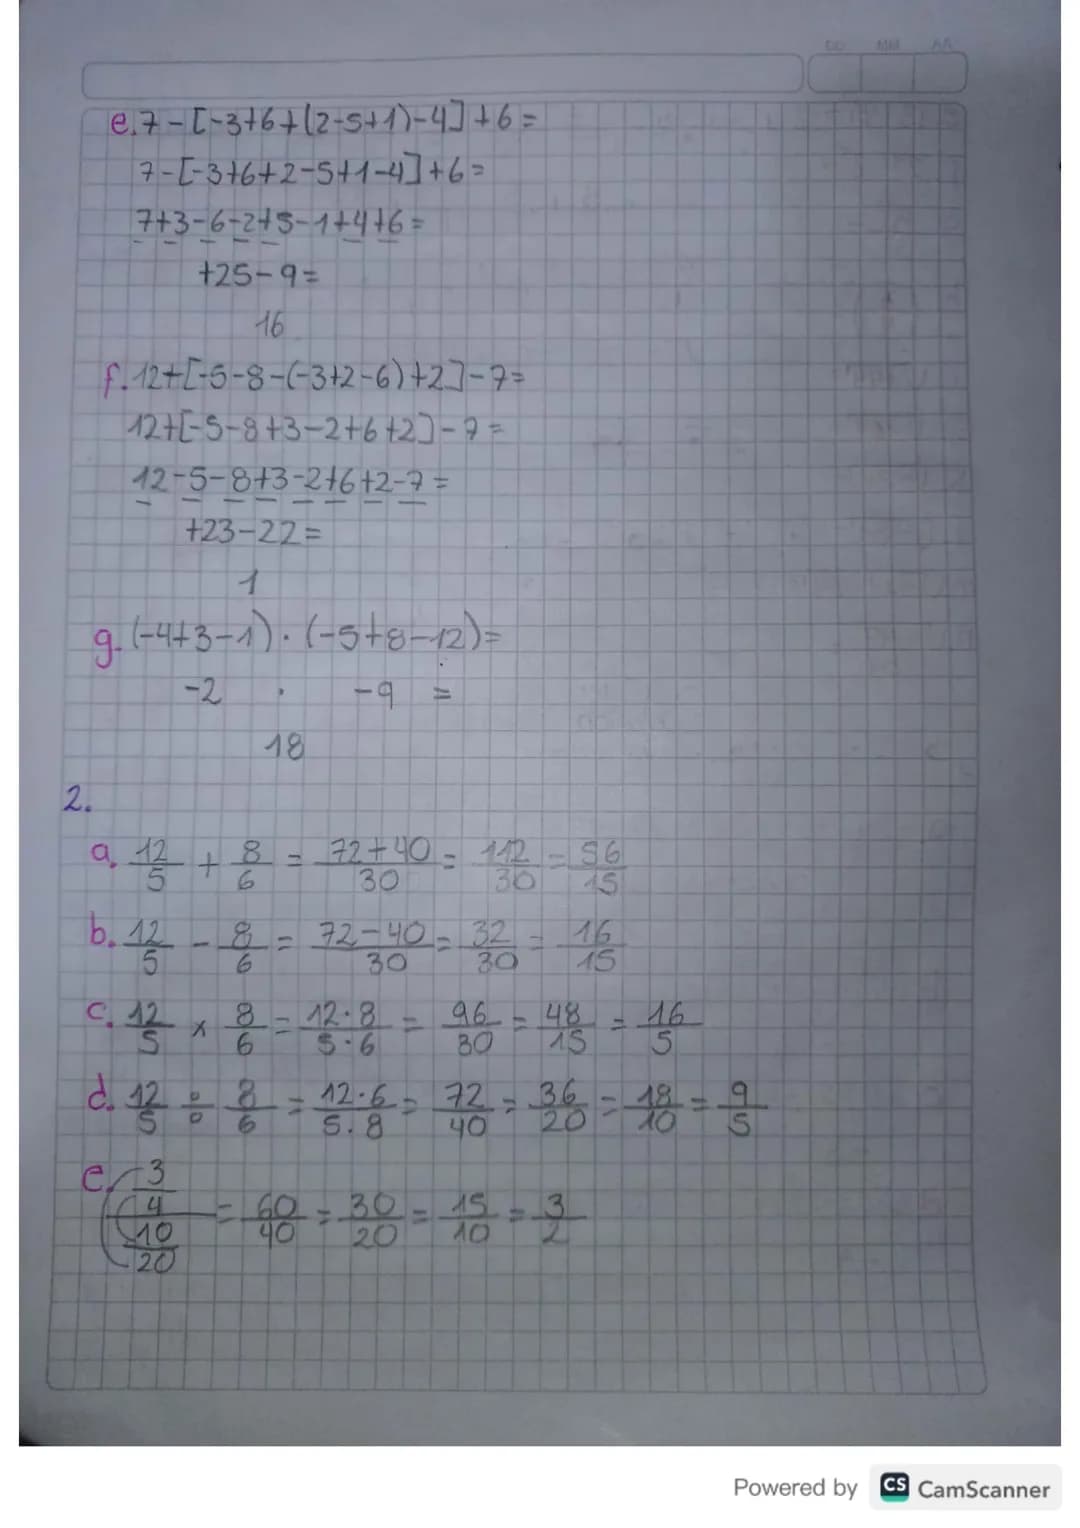 DD MM AA
e. 7-[-3+6+(2-5+1)-4]+6=
7-[-3+6+2-5+1-4]+6=
7+3-6-2+5-1+4+6=
+25-9=
16
f. 12+[-5-8-(-3+2-6)+2]-7=
12+[-5-8+3-2+6+2]-7=
12-5-8+3-2+6+2-7=
+23-22=
1
g. (-4+3-1)·(-5+8-12)=
-2 · -9 =
18
2.
a. 12/5 + 8/6 = 72+40/30 = 112/30 = 56/15
b. 12/5 - 8/6 = 72-40/30 = 32/30 = 16/15
c. 12/5 x 8/6 = 12·8/5·6 = 96/30 = 48/15 = 16/5
d. 12/5 ÷ 8/6 = 12·6/5·8 = 72/40 = 36/20 = 18/10 = 9/5
e. 3/4/10/20 = 60/40 = 30/20 = 15/10 = 3/2
Powered by CS CamScanner